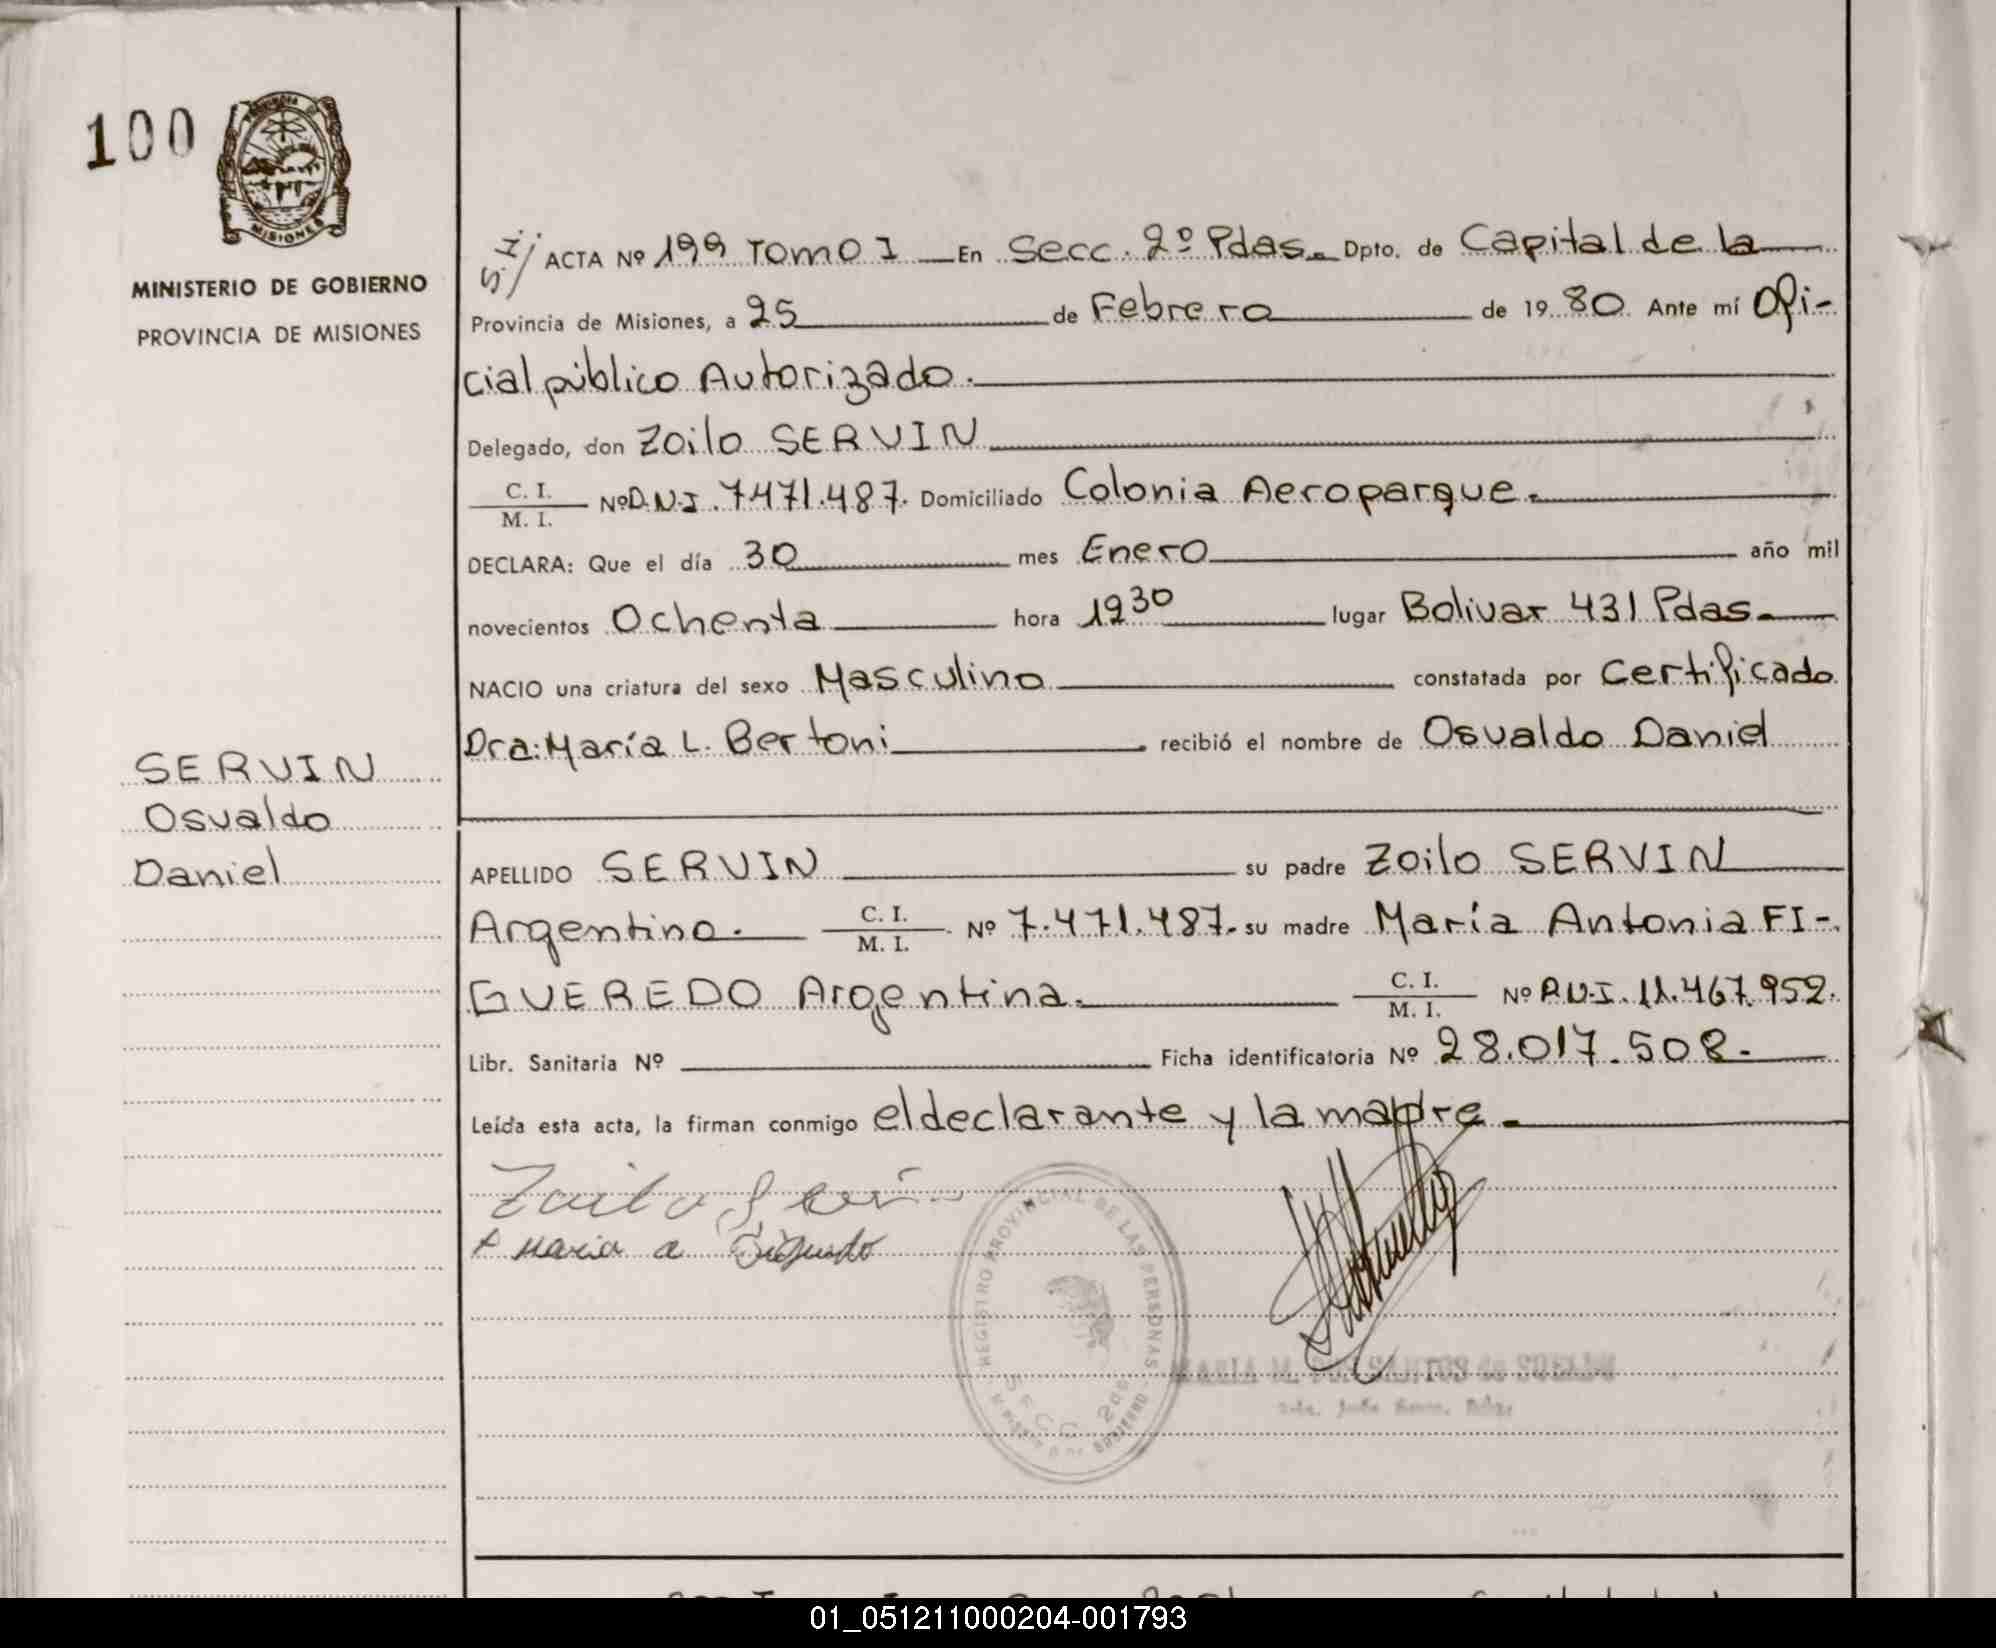 100
MISIONES
MINISTERIO DE GOBIERNO
PROVINCIA DE MISIONES
SERVIN
Osvaldo
Daniel
S.I/ ACTA Nº 199 Tomo I En Secc. 2º Pdas. Dpto. de Capital de la
Provincia de Misiones, a 25 de Febrero de 1980 Ante mí Ofi-
cial público Autorizado.
Delegado, don Zoilo SERVIN
C. I.
M. I. Nº D.N.I. 7471.487. Domiciliado Colonia Aeroparque.
DECLARA: Que el día 30 mes Enero año mil
novecientos Ochenta hora 1930 lugar Bolivar 431 Pdas.
NACIO una criatura del sexo Masculino constatada por Certificado
Dra: María L. Bertoni recibió el nombre de Osvaldo Daniel
APELLIDO SERVIN su padre Zoilo SERVIN
Argentino. C. I. M. I. Nº 7.471.487. su madre María Antonia FI-
GUEREDO Argentina. C. I. M. I. Nº D.N.I. 11.467.952.
Libr. Sanitaria Nº Ficha identificatoria Nº 28.017.508.
Leída esta acta, la firman conmigo el declarante y la madre.
Zoilo Servin
Maria a
REGISTRO PROVINCIAL DE LAS PERSONAS
SECC 2da
MINISTERIO DE GOBIERNO
MARIA M.
01_051211000204-001793